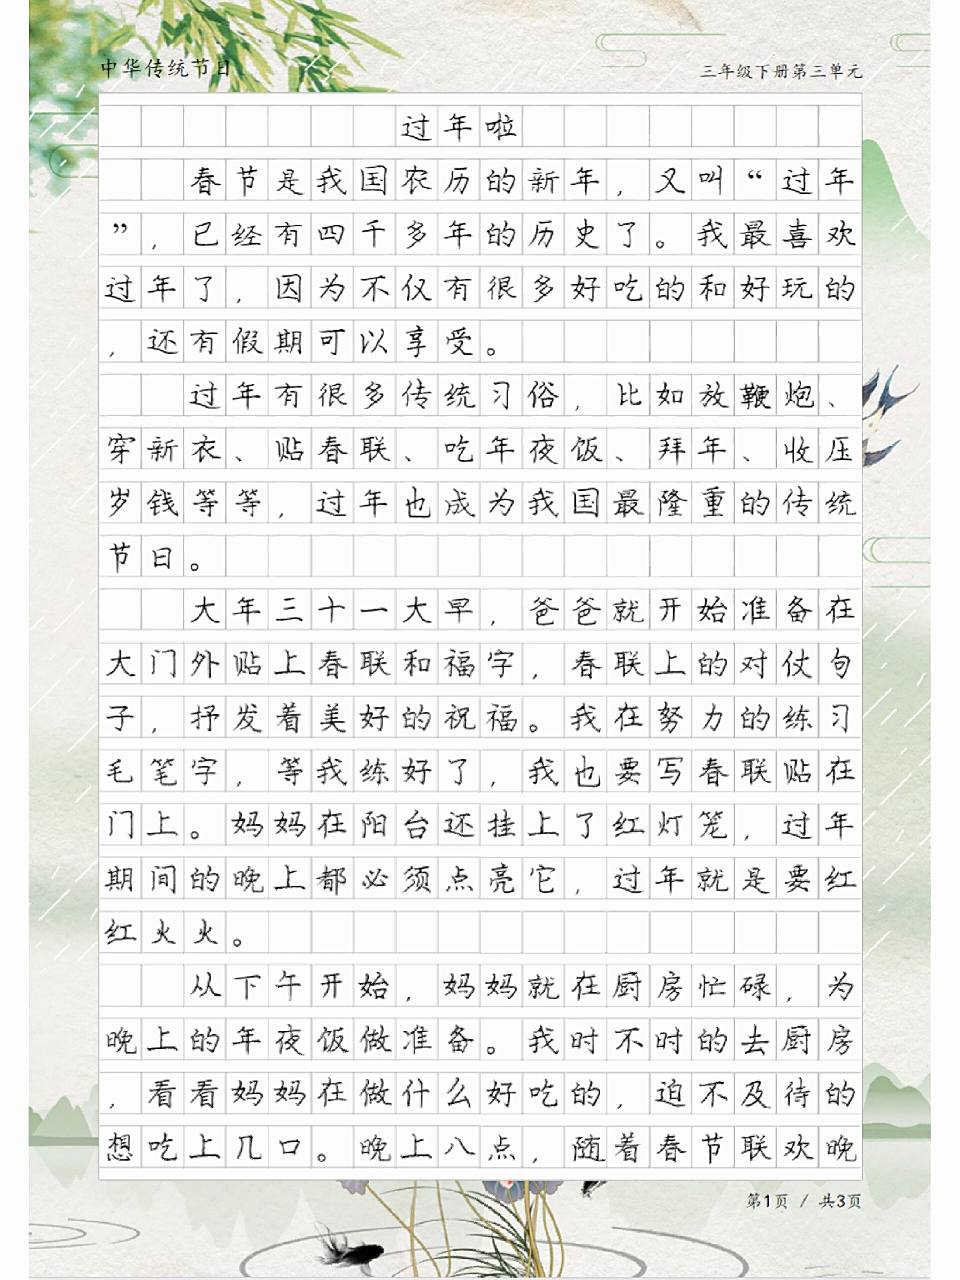 中华传统节日
三年级下册第三单元
过年啦
春节是我国农历的新年，又叫“过年
”，已经有四千多年的历史了。我最喜欢
过年了，因为不仅有很多好吃的和好玩的
，还有假期可以享受。
过年有很多传统习俗，比如放鞭炮、
穿新衣、贴春联、吃年夜饭、拜年、收压
岁钱等等，过年也成为我国最隆重的传统
节日。
大年三十一大早，爸爸就开始准备在
大门外贴上春联和福字，春联上的对仗句
子，抒发着美好的祝福。我在努力的练习
毛笔字，等我练好了，我也要写春联贴在
门上。妈妈在阳台还挂上了红灯笼，过年
期间的晚上都必须点亮它，过年就是要红
红火火。
从下午开始，妈妈就在厨房忙碌，为
晚上的年夜饭做准备。我时不时的去厨房
，看看妈妈在做什么好吃的，迫不及待的
想吃上几口。晚上八点，随着春节联欢晚
第1页 / 共3页